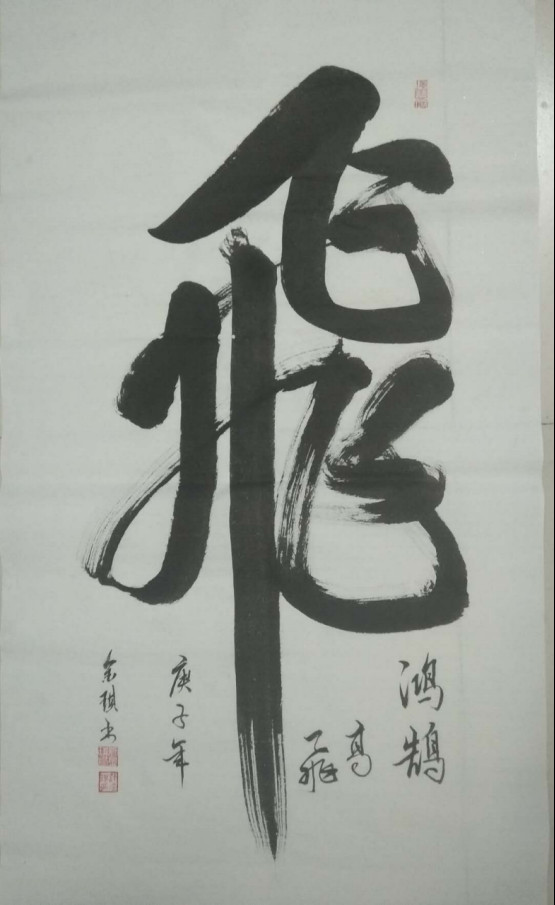 飛
鴻鵠
高
飛
庚子年
金琪书